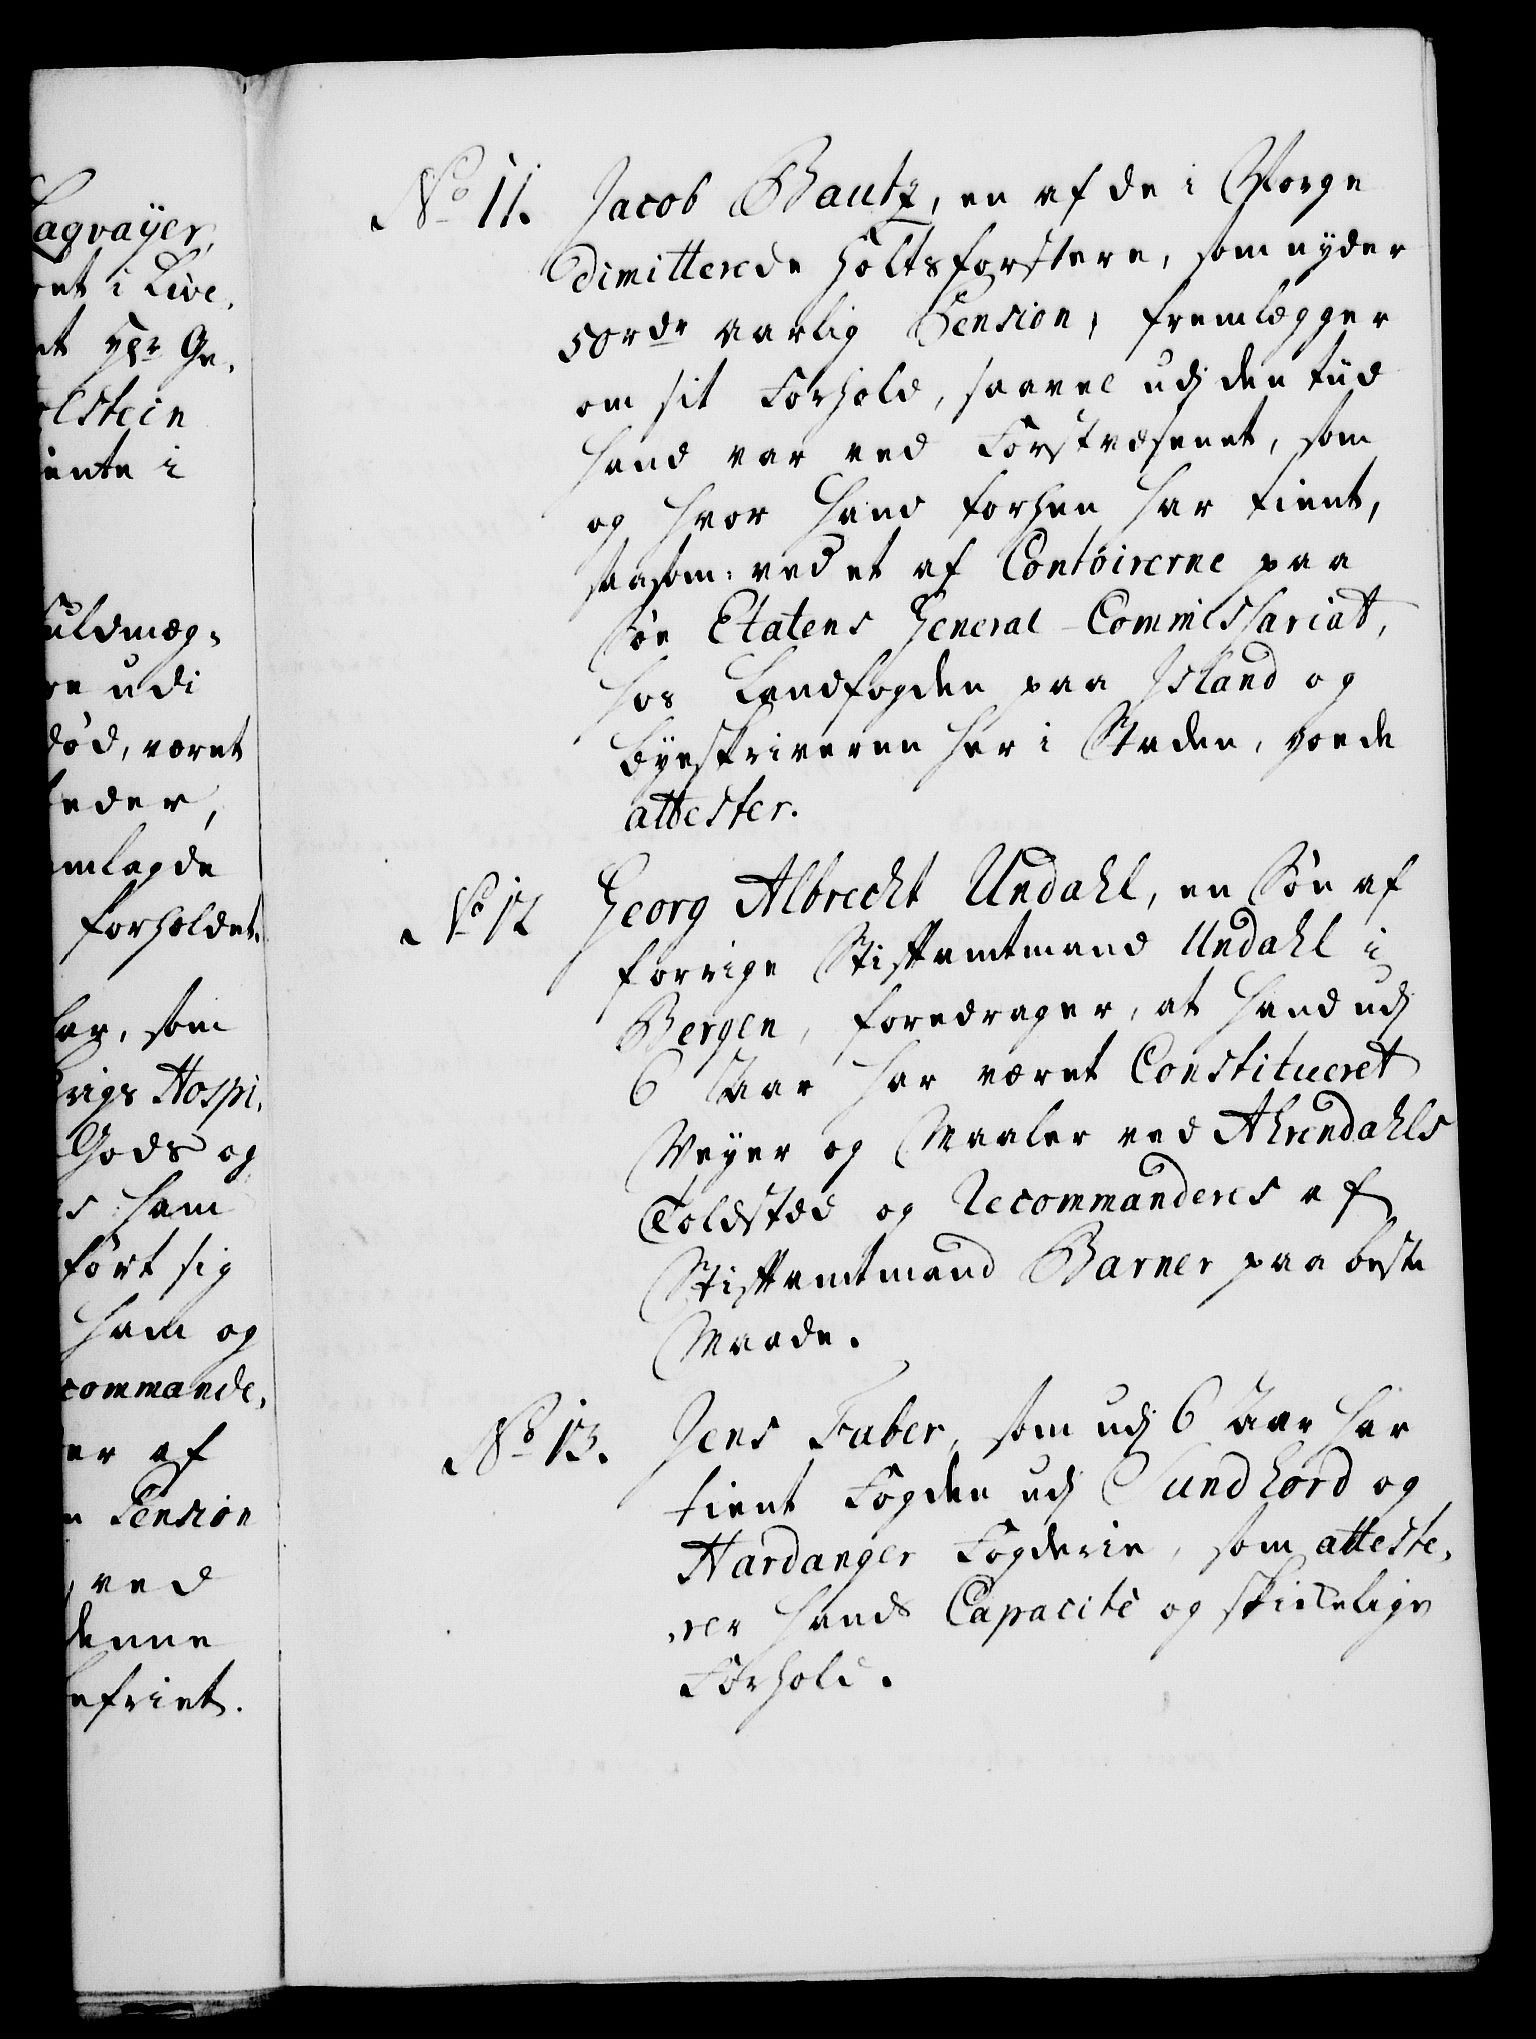 Lagvayer,
ret i Live,
et Hr Ge,
olstein
iente i
Fuldmæg,
re udi
død, været
teder,
emlagde
forholdet.
lar, som
Gods og
es ham
ført sig
ham og
commande,
er af
n Pension
, ved
denne
befriet.
No 11. Jacob Bautz, en af de i Norge
dimitterede Holtsforstere, som nyder
50 rdr aarlig Pension, fremlegger
om sit Forhold, saavel udj den tiid
hand var ved Forstvæsenet, som
og hvor hand forhen har tient,
saasom: ved et af Contoirerne paa
Søe Etatens General-Commissariat,
hos Landfogden paa Island og
Byeskriveren her i Staden, goede
attester.
No 12 Georg Albrecht Undahl, en Søn af
forrige Stiftamtmand Undahl i
Bergen, foredrager, at hand udj
6 Aar har været Constitueret
Veyer og Maaler ved Ahrendahls
Toldsted og Recommanderes af
Stiftamtmand Barner paa beste
Maade.
No 13. Jens Faber, som udj 6 Aar har
tient Fogden udj Sundhord og
Hardanger Fogderie, som atteste,
,rer hands Capacité og skikkelige
Forhold.